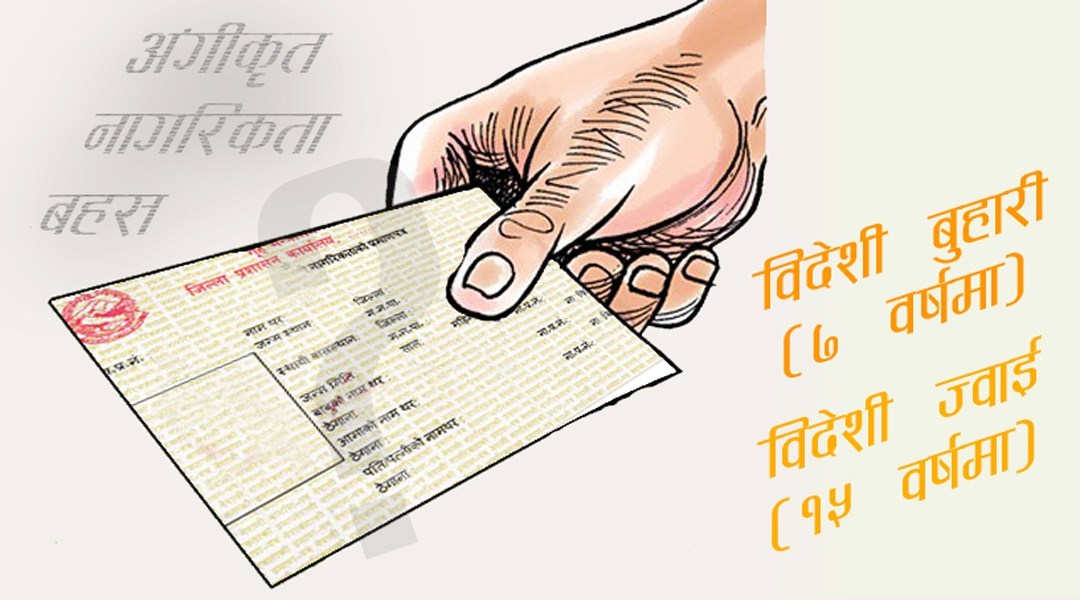 अंगीकृत
नागरिकता
बहस
जिल्ला प्रशासन कार्यालय,
नागरिकताको प्रमाणपत्र
नाम थर:
जिल्ला
जन्म स्थान:
म.न.पा.
स्थायी बासस्थान:
जिल्ला:
म.न.पा.
जन्म मिति:
साल:
बाबुको नाम थर:
ठेगाना
आमाको नाम थर:
ठेगाना
पति/पत्नीको नामथर:
ठेगाना
ना.प्र.नं.
ना.प्र.नं.
ना.प्र.नं.
विदेशी बुहारी
(७ वर्षमा)
विदेशी ज्वाई
(१५ वर्षमा)